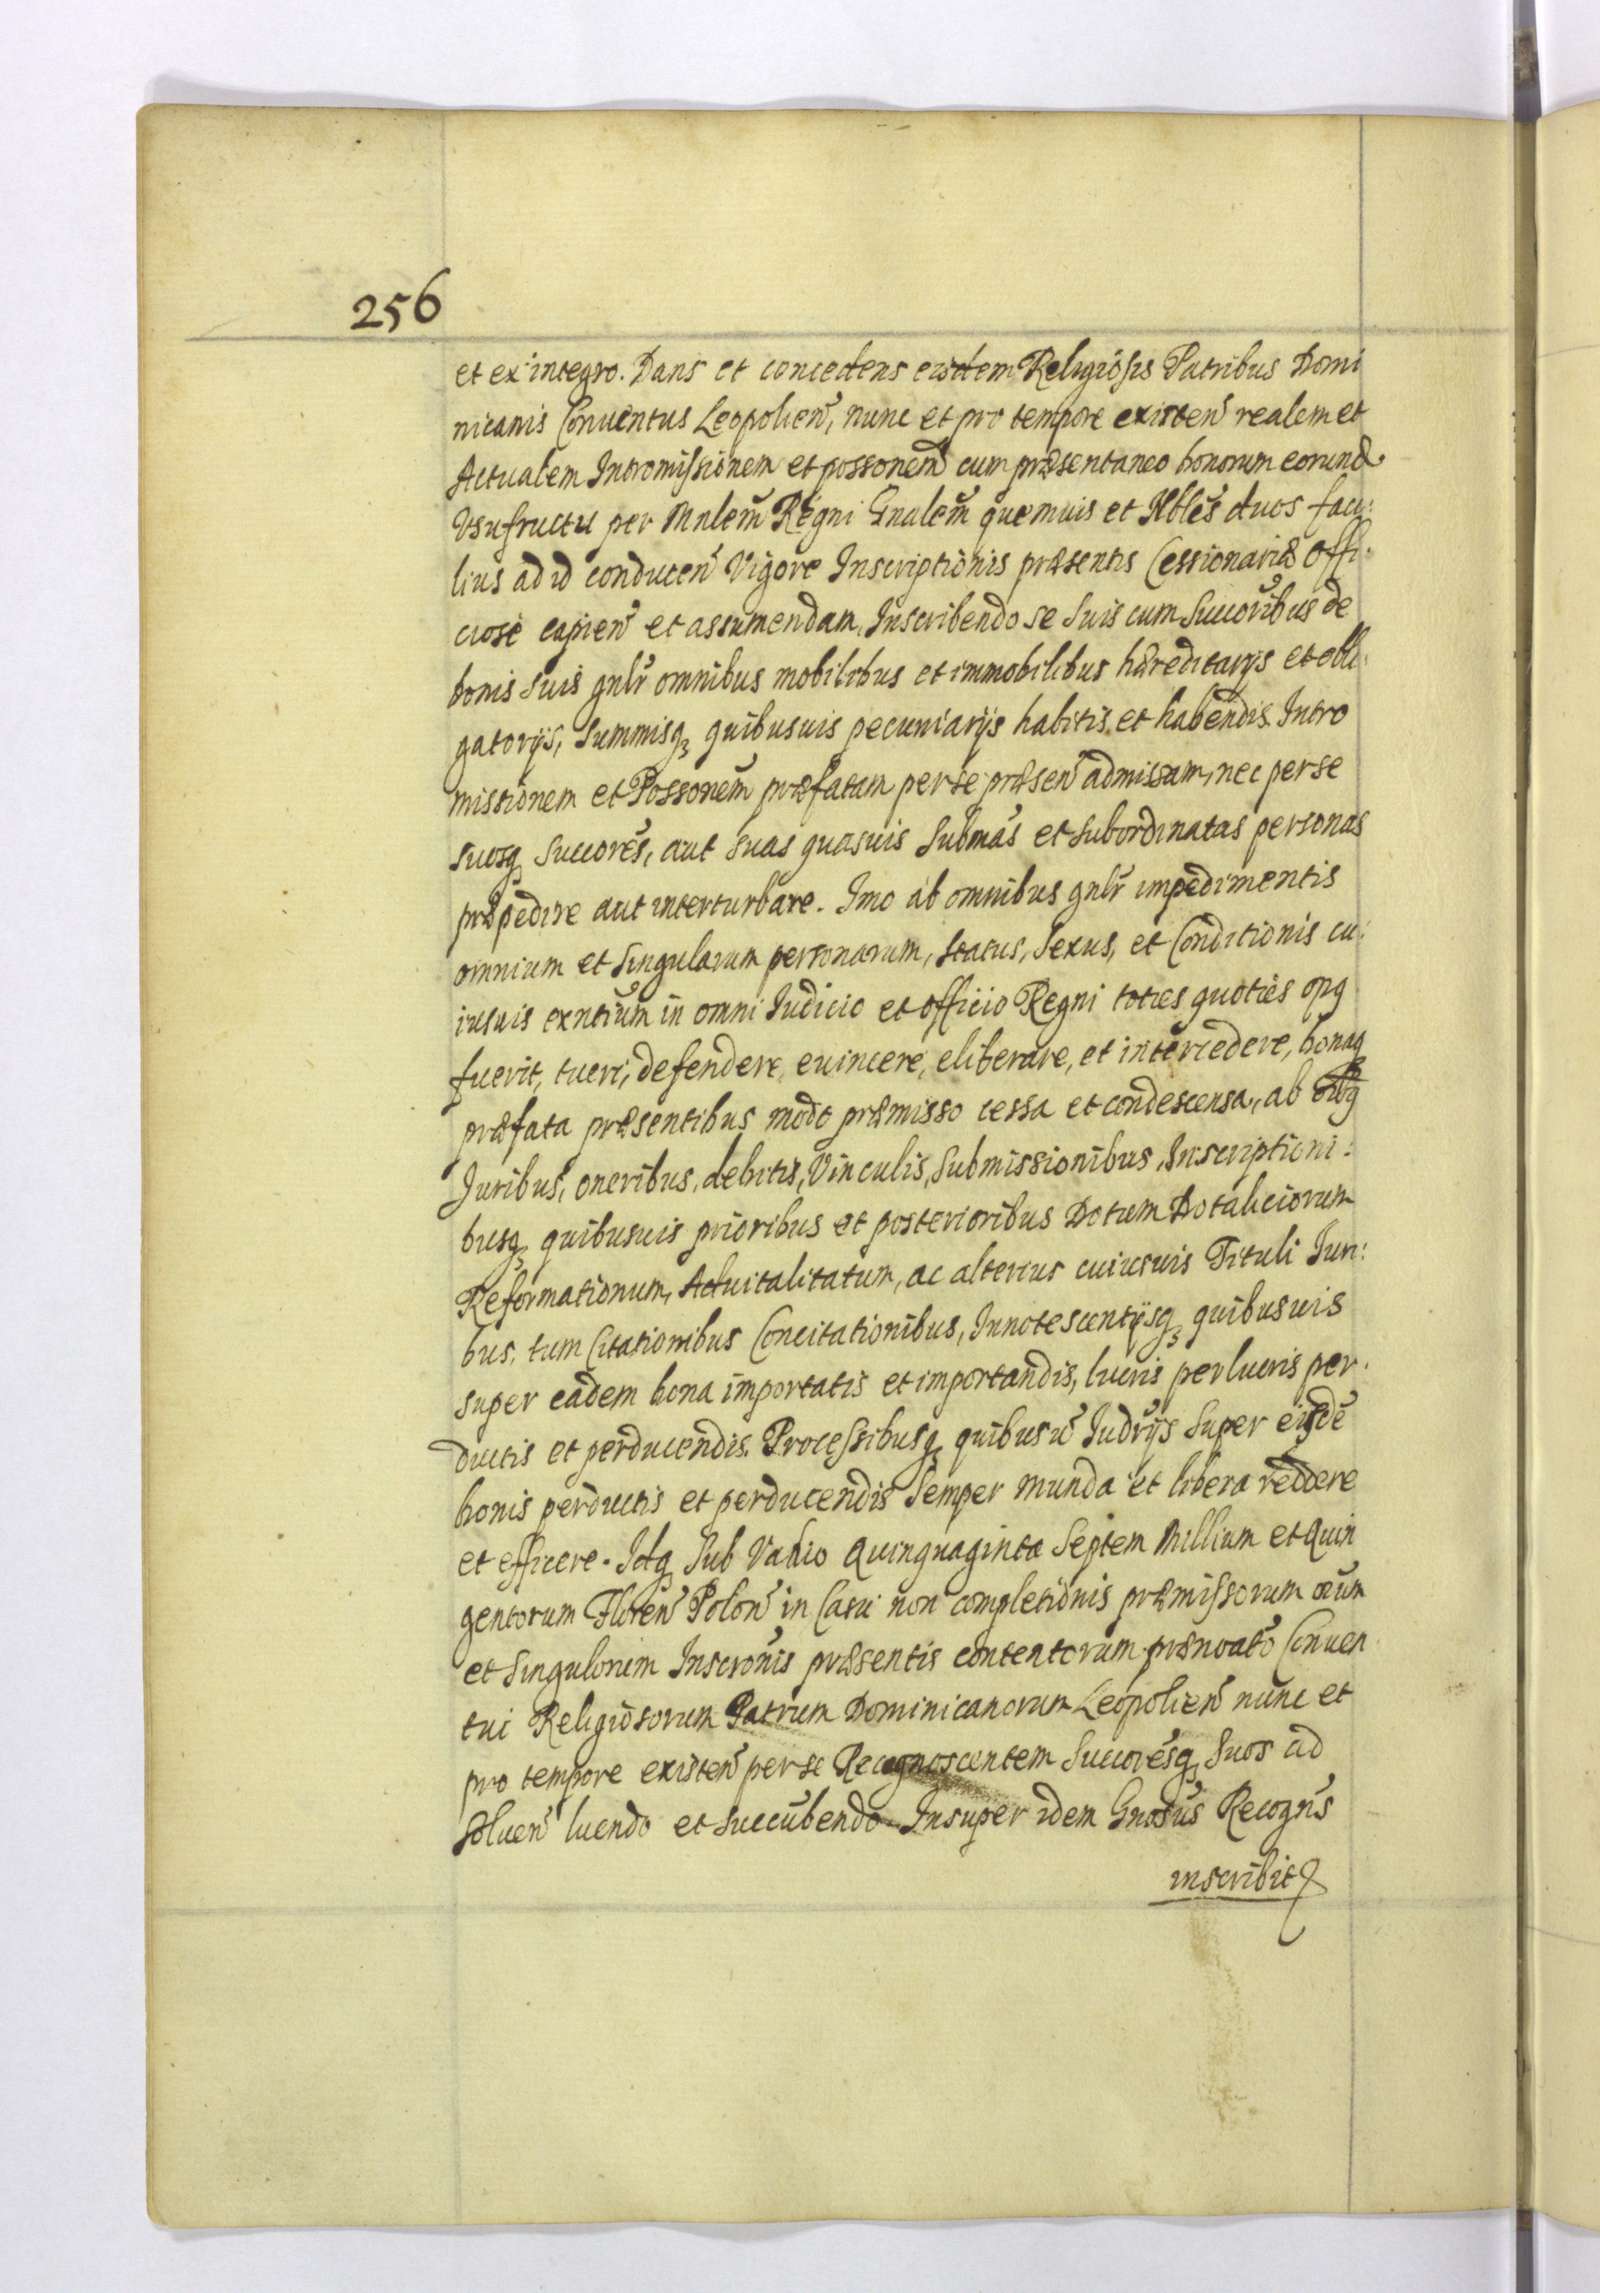 256
et ex integro. Dans et concedens eisdem Religiosis Patribus Domi
nicanis Conventus Leopolien, nunc et pro tempore existen realem et
Actualem Intromissionem et possonem cum præsentaneo bonorum eorund
Usufructu per Mnlem Regni Gnalem quemuis et Nbles duos faci:
lius ad id conducen Vigore Inscriptionis præsentis Cessionariæ Offi:
ciose capien et assumendam. Inscribendo se suis cum succoribus de
bonis suis gnlr omnibus mobilibus et immobilibus hæreditarijs et obli:
gatorijs, Summisq3 quibusuis pecuniarijs habitis et habendis. Intro
missionem et Possonem præfatam per se præsen admissam, nec per se
suosq3 succores, aut suas quasuis submas et subordinatas personas
præpedire aut interturbare. Imo ab omnibus gnlr impedimentis
omnium et singularum personarum, status, sexus, et Conditionis cu:
iusuis exntium in omni Iudicio et officio Regni toties quoties opq
fuerit, tueri, defendere, euincere, eliberare, et intercedere, bonaq
præfata præsentibus modo præmisso cessa et condescensa, ab oibq
Iuribus, oneribus, debitis, Vinculis, Submissionibus, Inscriptioni:
busq3 quibusuis prioribus et posterioribus Dotum Dotaliciorum
Reformationum, Aduitalitatum, ac alterius cuiusuis Tituli Iuri:
bus, tum Citationibus Concitationibus, Innotescentijsq3 quibusuis
super eadem bona importatis et importandis, lucris perlucris per:
ductis et perducendis. Processibusq3 quibusu Iudrijs super eisde
bonis perductis et perducendis semper munda et libera reddere
et efficere. Idq3 sub Vadio Quinquaginta Septem Millium et Quin
gentorum Floren Polon in Casu non completionis præmissorum oium
et singulorum Inscronis præsentis contentorum prænoato Conuen
tui Religiosorum Patrum Dominicanorum Leopolien nunc et
pro tempore existen per se Recognoscentem Succoresq3 suos ad
soluen luendo et succubendo. Insuper idem Gnosus Recogns
inscribit